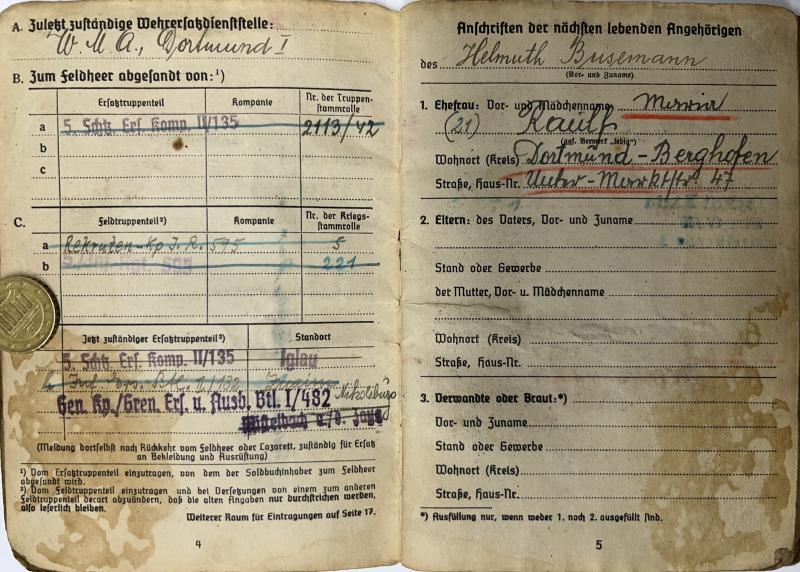 A. Zuletzt zuständige Wehrersatzdienststelle:
W. M. A., Dortmund I
B. Zum Feldheer abgesandt von:¹)
Ersatztruppenteil
Kompanie
Nr. der Truppen-
stammrolle
a
5. Schtz. Ers. Komp. II/135
2113/42
b
c
C.
Feldtruppenteil²)
Kompanie
Nr. der Kriegs-
stammrolle
a
Rekruten-Kp J. R. 595
5
b
221
Jetzt zuständiger Ersatztruppenteil²)
Standort
5. Schtz. Ers. Komp. II/135
Iglau
Gen. Kp./Gren. Ers. u. Ausb. Btl. I/482
Nikolsburg
Mistelbach a/d. Zaya
(Meldung dortselbst nach Rückkehr vom Feldheer oder Lazarett, zuständig für Ersatz
an Bekleidung und Ausrüstung)
¹) Vom Ersatztruppenteil einzutragen, von dem der Soldbuchinhaber zum Feldheer
abgesandt wird.
²) Vom Feldtruppenteil einzutragen und bei Versetzungen von einem zum anderen
Feldtruppenteil derart abzuändern, daß die alten Angaben nur durchstrichen werden,
also leserlich bleiben.
Weiterer Raum für Eintragungen auf Seite 17.
4
Anschriften der nächsten lebenden Angehörigen
des Helmuth Busemann
(Vor- und Zuname)
1. Ehefrau: Vor- und Mädchenname Maria
(21) Raulf
(ggf. Vermerk „ledig")
Wohnort (Kreis) Dortmund-Berghofen
Straße, Haus-Nr. Unter-Marktstr 47
2. Eltern: des Vaters, Vor- und Zuname
Stand oder Gewerbe
der Mutter, Vor- u. Mädchenname
Wohnort (Kreis)
Straße, Haus-Nr.
3. Verwandte oder Braut:*)
Vor- und Zuname
Stand oder Gewerbe
Wohnort (Kreis)
Straße, Haus-Nr.
*) Ausfüllung nur, wenn weder 1. noch 2. ausgefüllt sind.
5